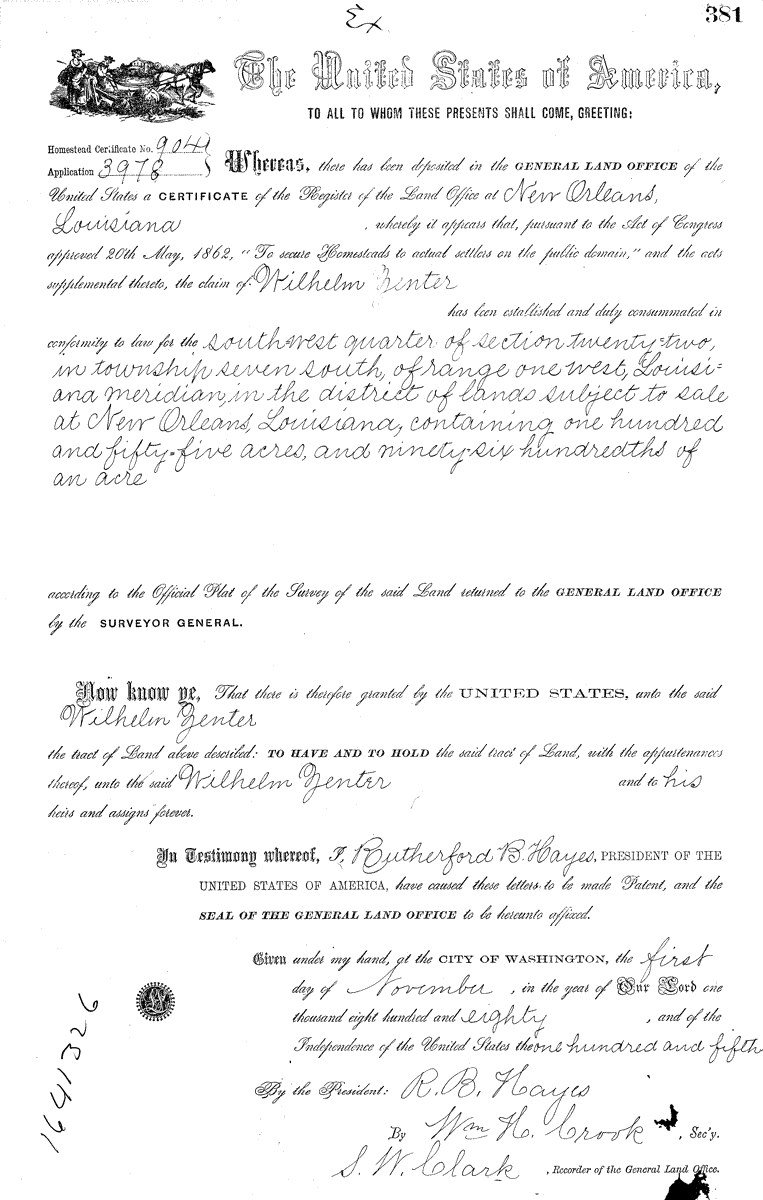 Ex
381
The United States of America,
TO ALL TO WHOM THESE PRESENTS SHALL COME, GREETING:
Homestead Certificate No. 904
Application 3978
Whereas, there has been deposited in the GENERAL LAND OFFICE of the
United States a CERTIFICATE of the Register of the Land Office at New Orleans,
Louisiana, whereby it appears that, pursuant to the Act of Congress
approved 20th May, 1862, "To secure Homesteads to actual settlers on the public domain," and the acts
supplemental thereto, the claim of Wilhelm Zenter
has been established and duly consummated in
conformity to law for the southwest quarter of section twenty-two,
in township seven south, of range one west, Louisi-
ana meridian, in the district of lands subject to sale
at New Orleans, Louisiana, containing one hundred
and fifty-five acres, and ninety-six hundredths of
an acre
according to the Official Plat of the Survey of the said Land returned to the GENERAL LAND OFFICE
by the SURVEYOR GENERAL.
Now know ye, That there is therefore granted by the UNITED STATES, unto the said
Wilhelm Zenter
the tract of Land above described: TO HAVE AND TO HOLD the said tract of Land, with the appurtenances
thereof, unto the said Wilhelm Zenter and to his
heirs and assigns forever.
In Testimony whereof, I, Rutherford B. Hayes, PRESIDENT OF THE
UNITED STATES OF AMERICA, have caused these letters to be made Patent, and the
SEAL OF THE GENERAL LAND OFFICE to be hereunto affixed.
Given under my hand, at the CITY OF WASHINGTON, the first
day of November, in the year of Our Lord one
thousand eight hundred and eighty, and of the
Independence of the United States the one hundred and fifth
By the President: R. B. Hayes
By Wm H. Crook, Sec'y.
S. W. Clark, Recorder of the General Land Office.
1641326